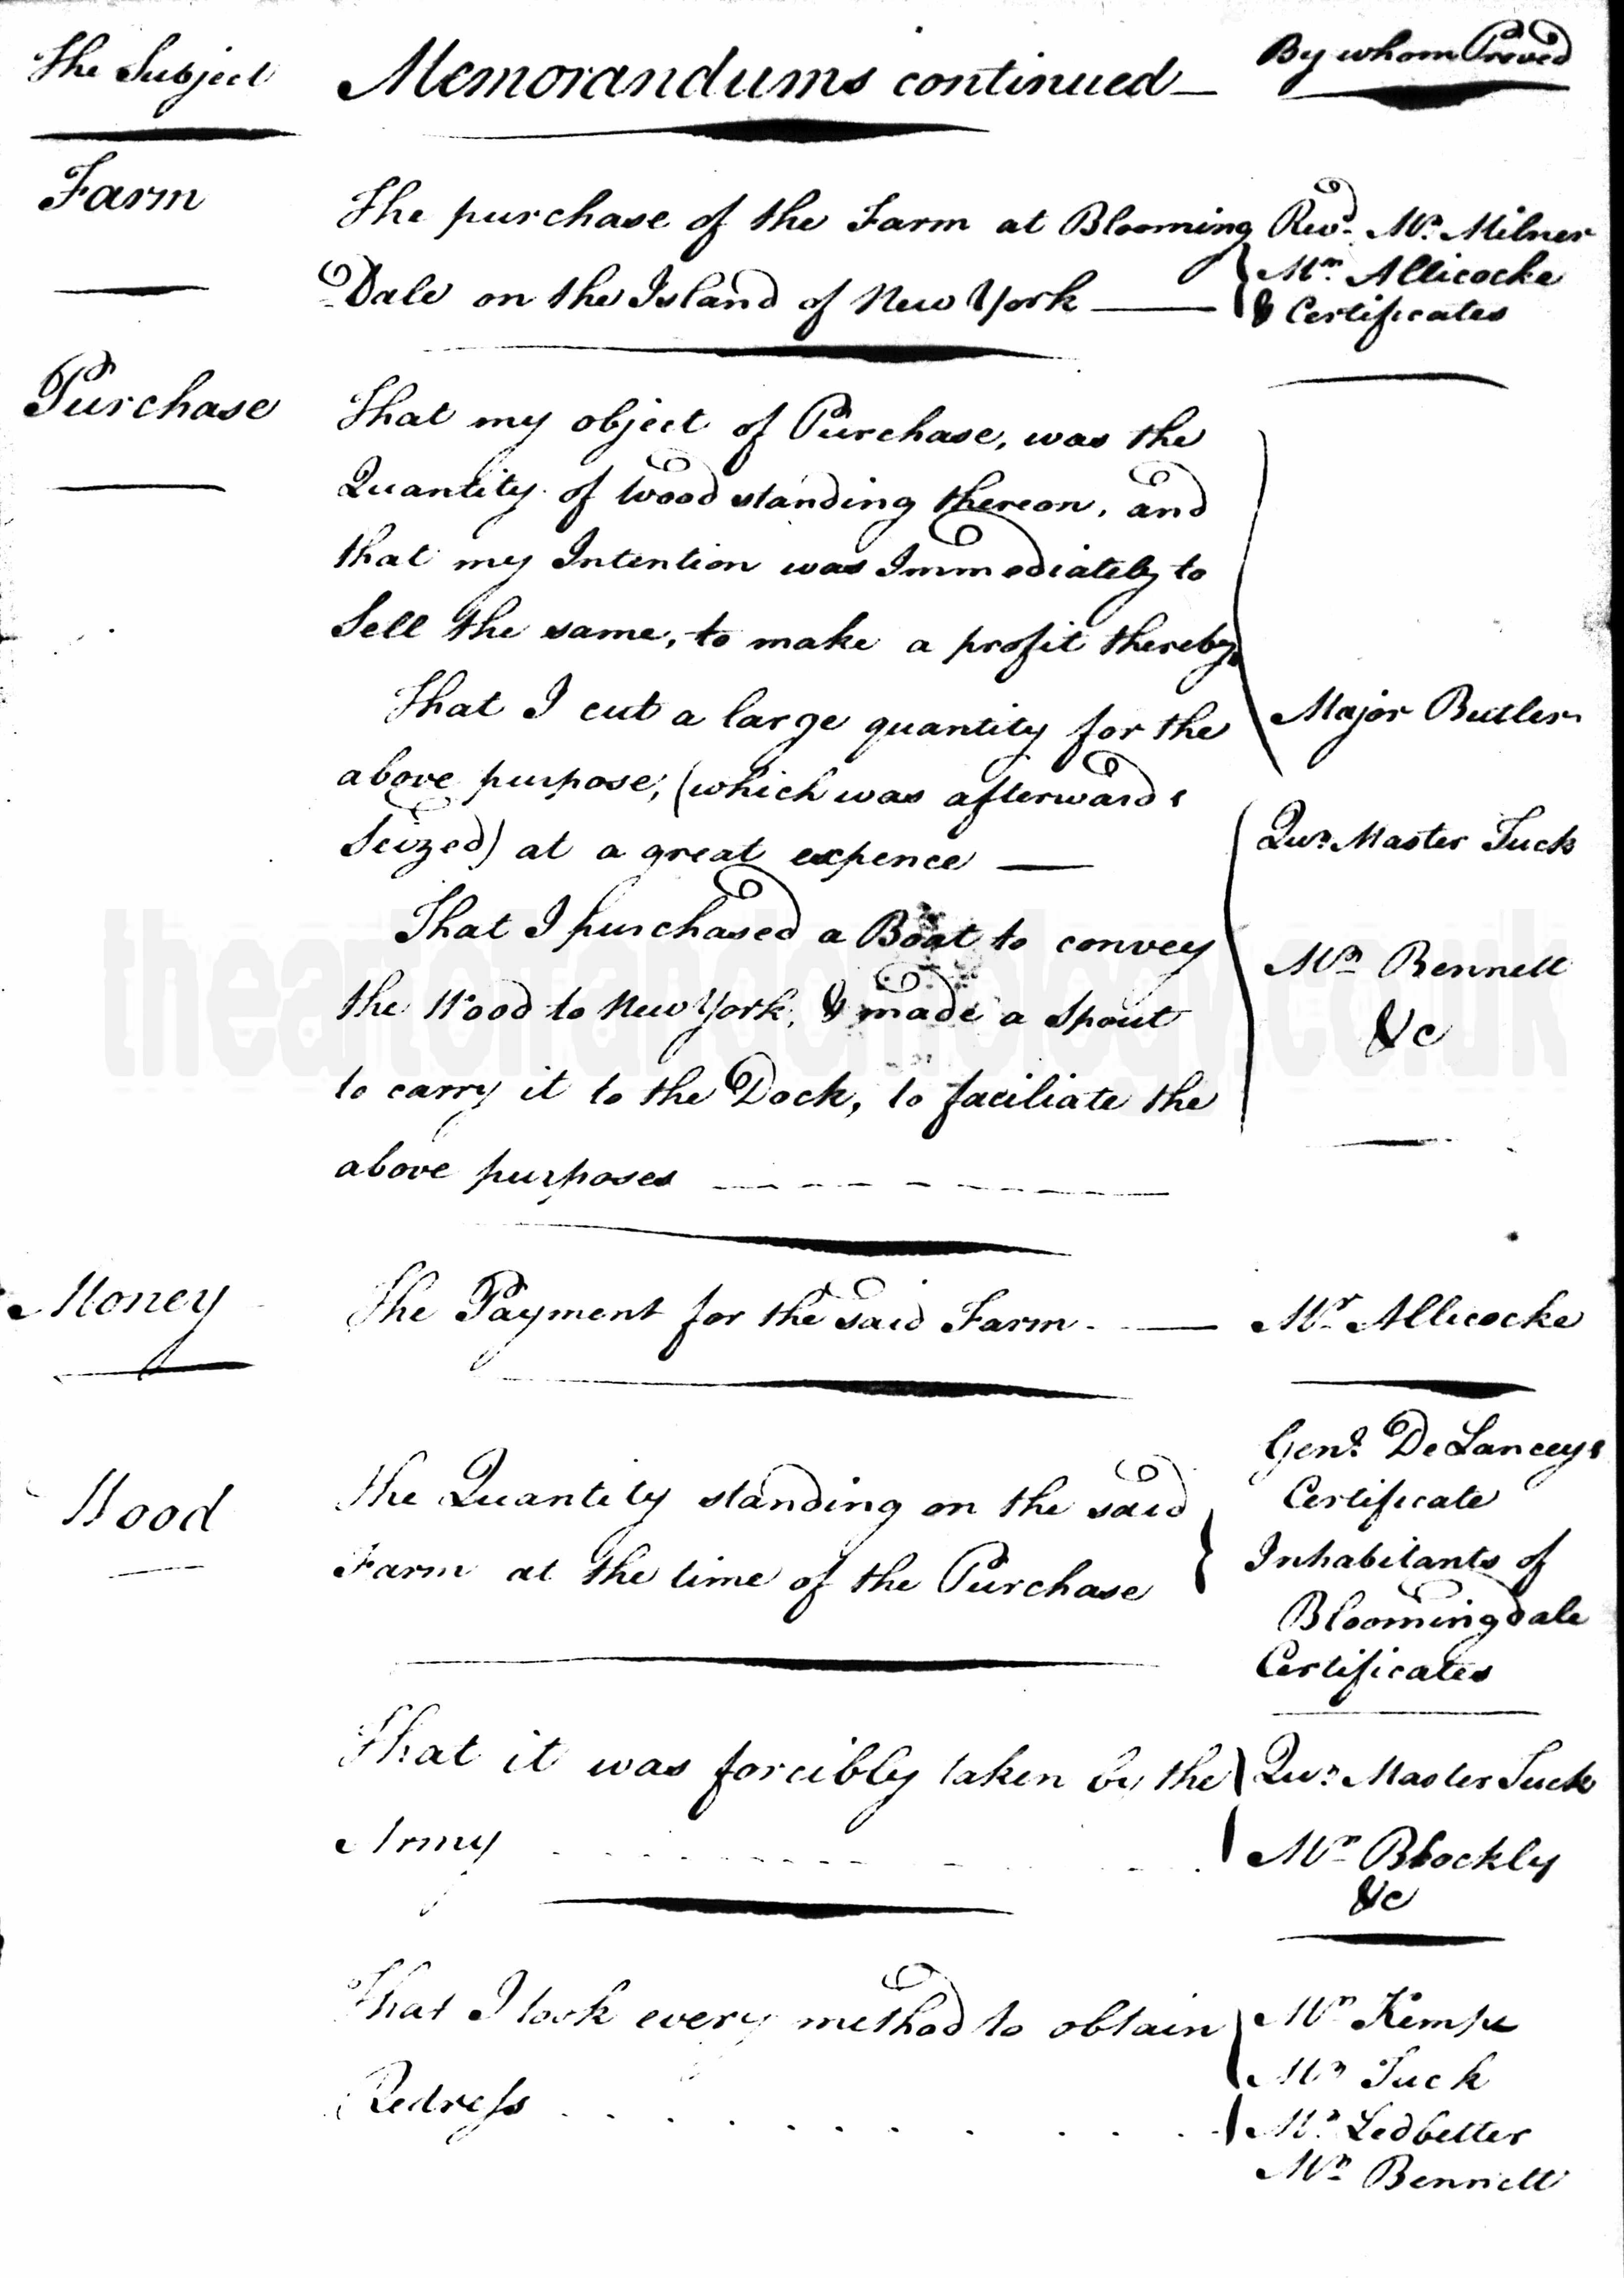 The Subject
Memorandums continued
By whom Proved
Farm
The purchase of the Farm at Blooming
Dale on the Island of New York
Revd. Mr. Milner
Mr. Allicocke
& Certificates
Purchase
That my object of Purchase, was the
Quantity of Wood standing thereon, and
that my Intention was Immediately to
Sell the same, to make a profit thereby.
That I cut a large quantity for the
above purpose, (which was afterwards
Seized) at a great expence
That I purchased a Boat to convey
the Wood to New York, & made a Spout
to carry it to the Dock, to faciliate the
above purposes
Major Butler
Qur. Master Tuck
Mr. Bennett
&c
theartofrandomology.co.uk
Money
The Payment for the said Farm.
Mr. Allicocke
Wood
The Quantity standing on the said
Farm at the time of the Purchase
Genl. De Lanceys
Certificate
Inhabitants of
Bloomingdale
Certificates
That it was forcibly taken by the
Army
Qur. Master Tuck
Mr. Blockly
&c
That I took every method to obtain
Redress
Mr. Kempe
Mr. Tuck
Mr. Ledbetter
Mr. Bennett